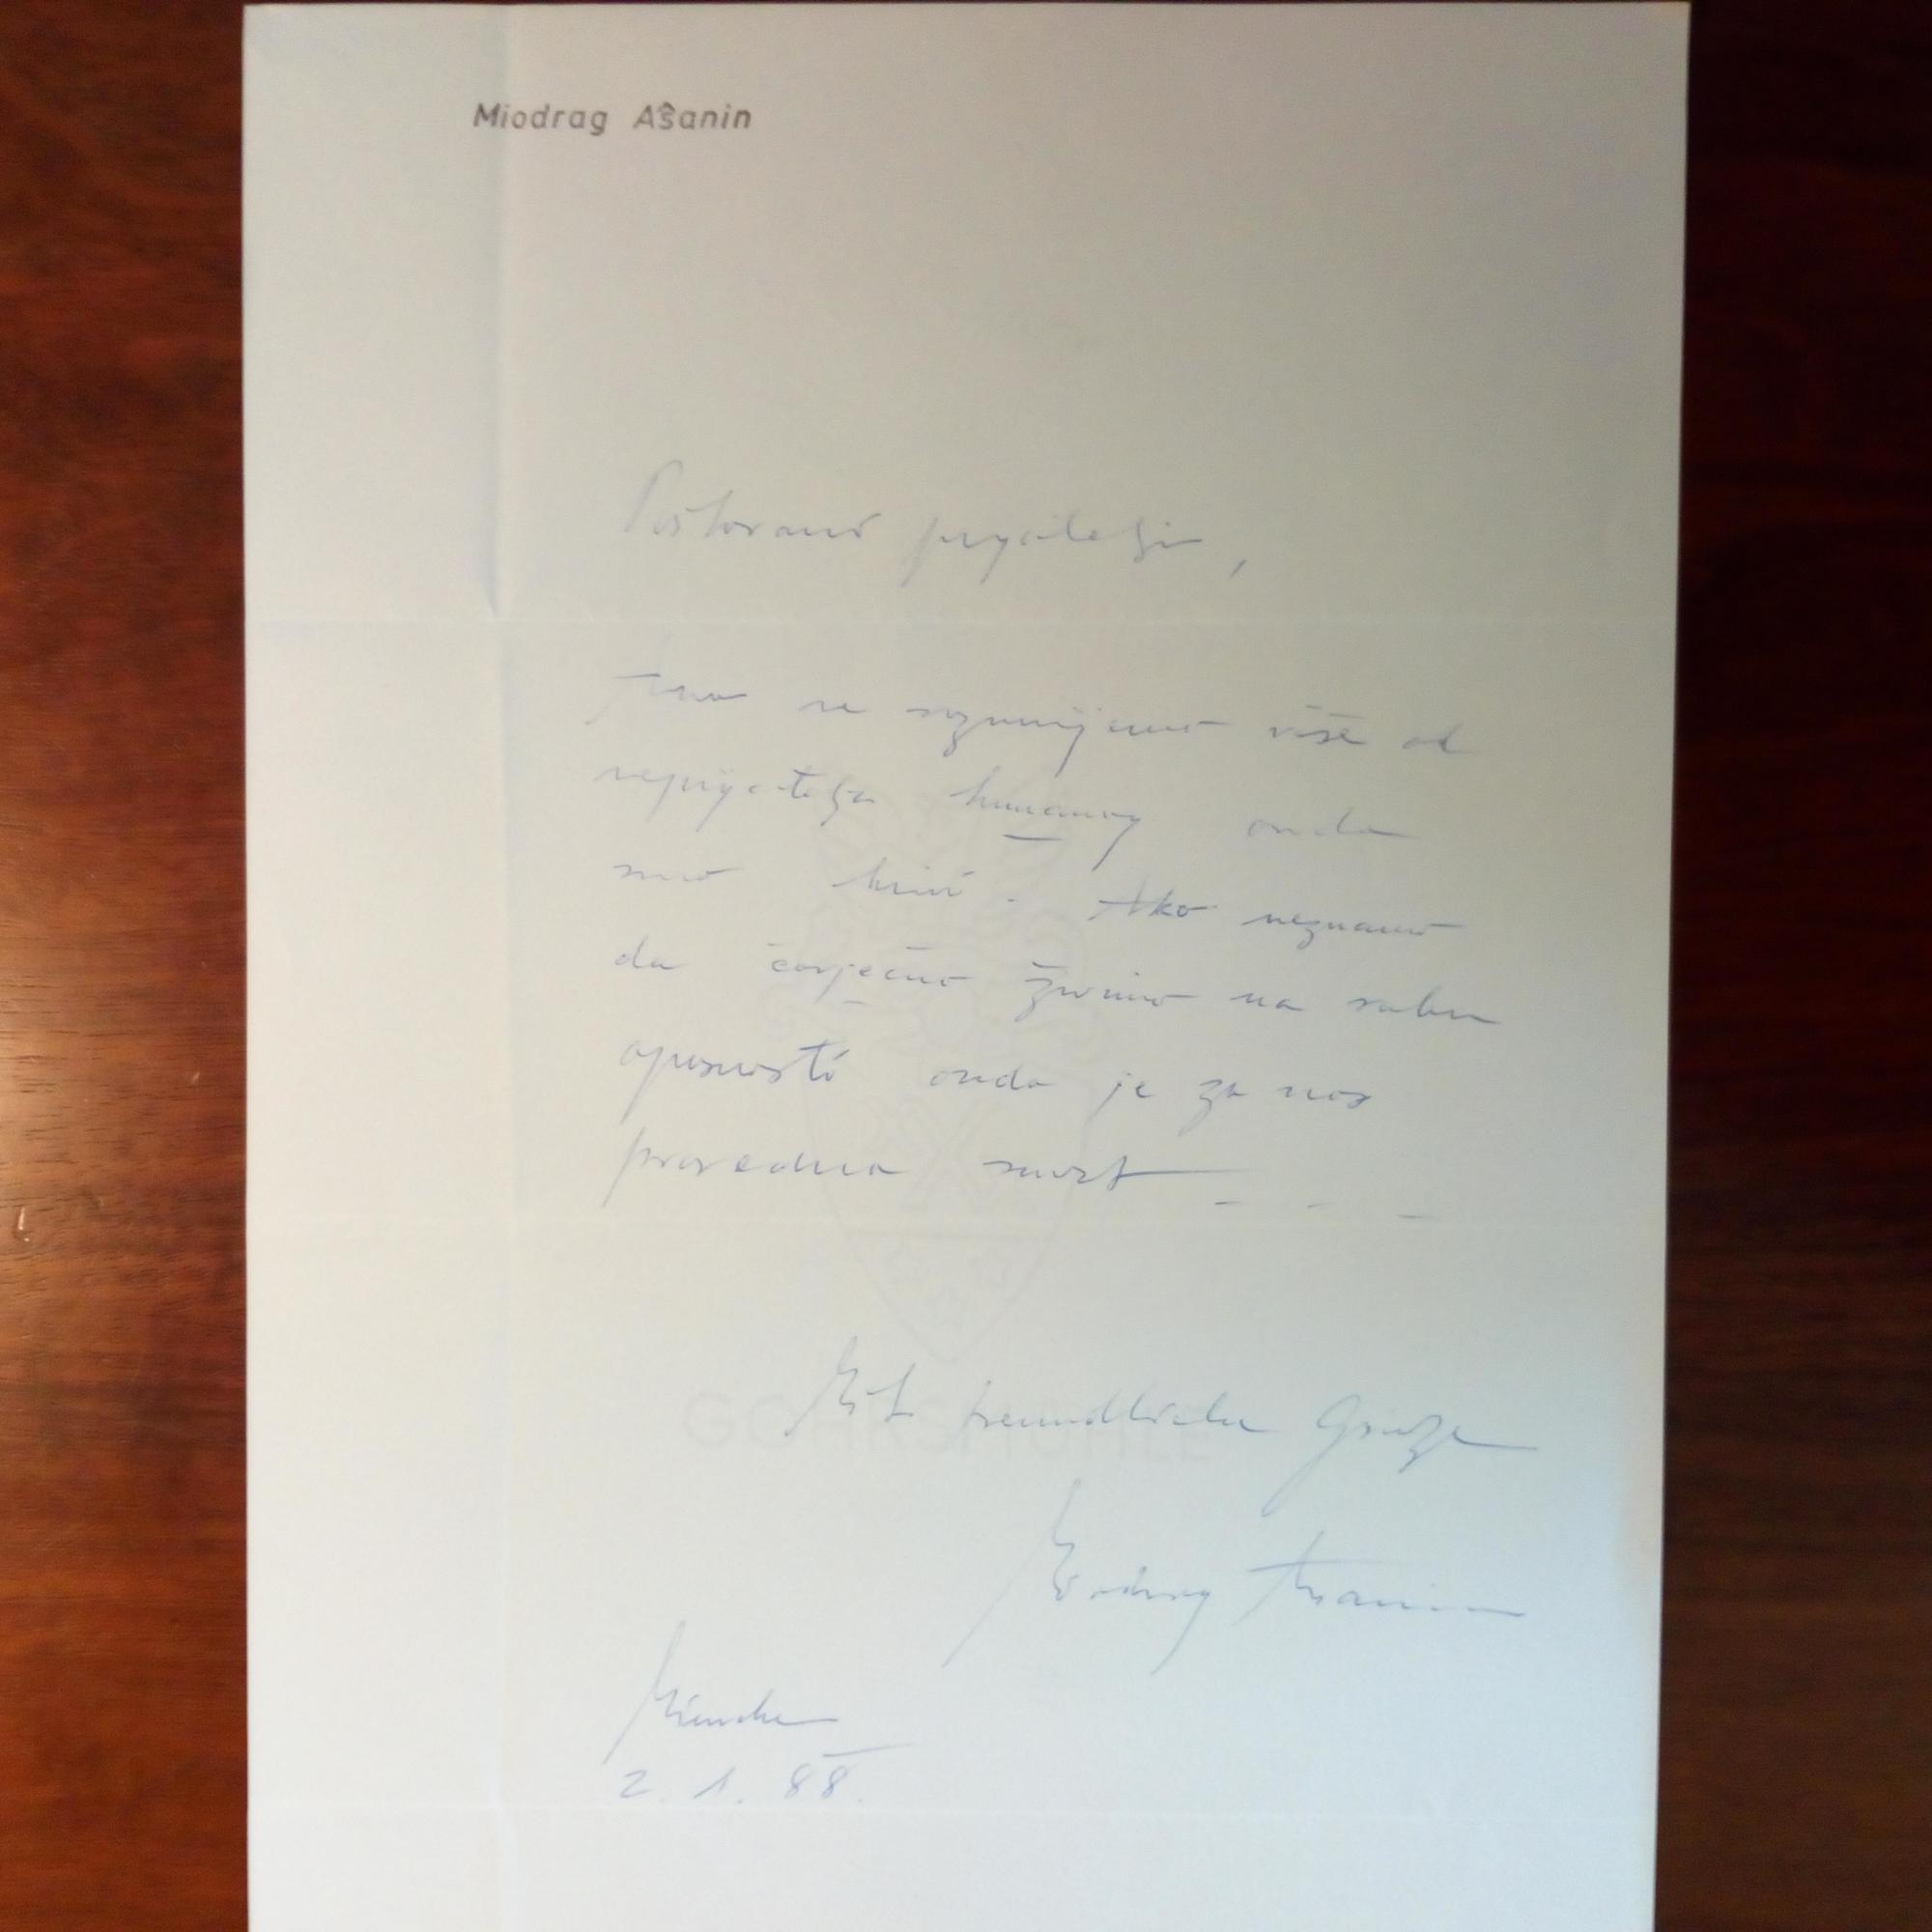 Miodrag Ašanin
Poštovani prijatelji,
se razumijemo više od
neprijatelja humanog onda
smo krivi. Ako neznamo
da čovječno živimo na
opasnosti onda je za nas
pravedna smrt - - -
Mit freundlichen Grüße
Miodrag Ašanin
München
2. 1. 88.
GOHRSMÜHLE